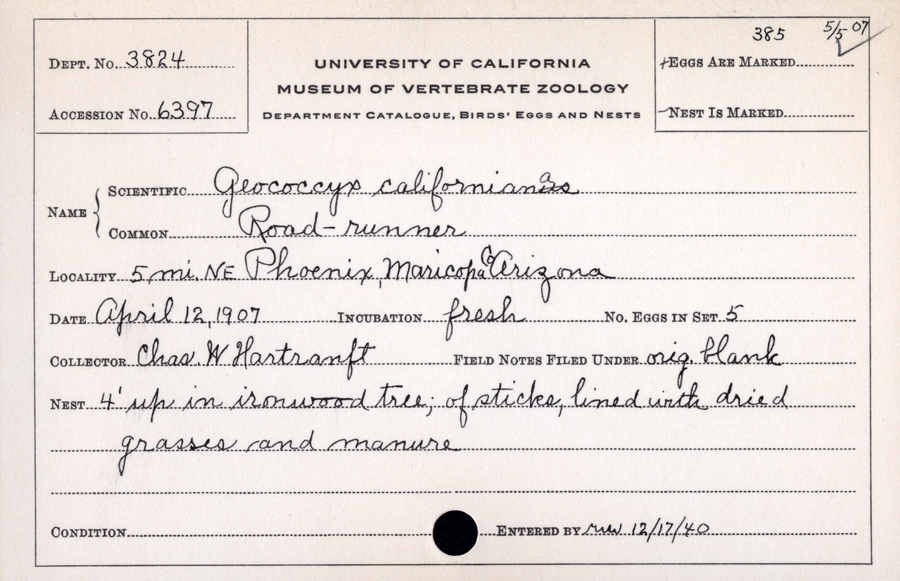 385 5/5 07
DEPT. No. 3824
UNIVERSITY OF CALIFORNIA
+EGGS ARE MARKED
MUSEUM OF VERTEBRATE ZOOLOGY
ACCESSION No. 6397
DEPARTMENT CATALOGUE, BIRDS' EGGS AND NESTS
–NEST IS MARKED
NAME { SCIENTIFIC Geococcyx californianus
COMMON Road-runner
LOCALITY 5 mi. NE Phoenix, Maricopa Co Arizona
DATE April 12, 1907 INCUBATION fresh No. EGGS IN SET 5
COLLECTOR Chas. W Hartranft FIELD NOTES FILED UNDER orig. blank
NEST 4' up in ironwood tree; of sticks, lined with dried
grasses and manure
CONDITION ENTERED BY 12/17/40